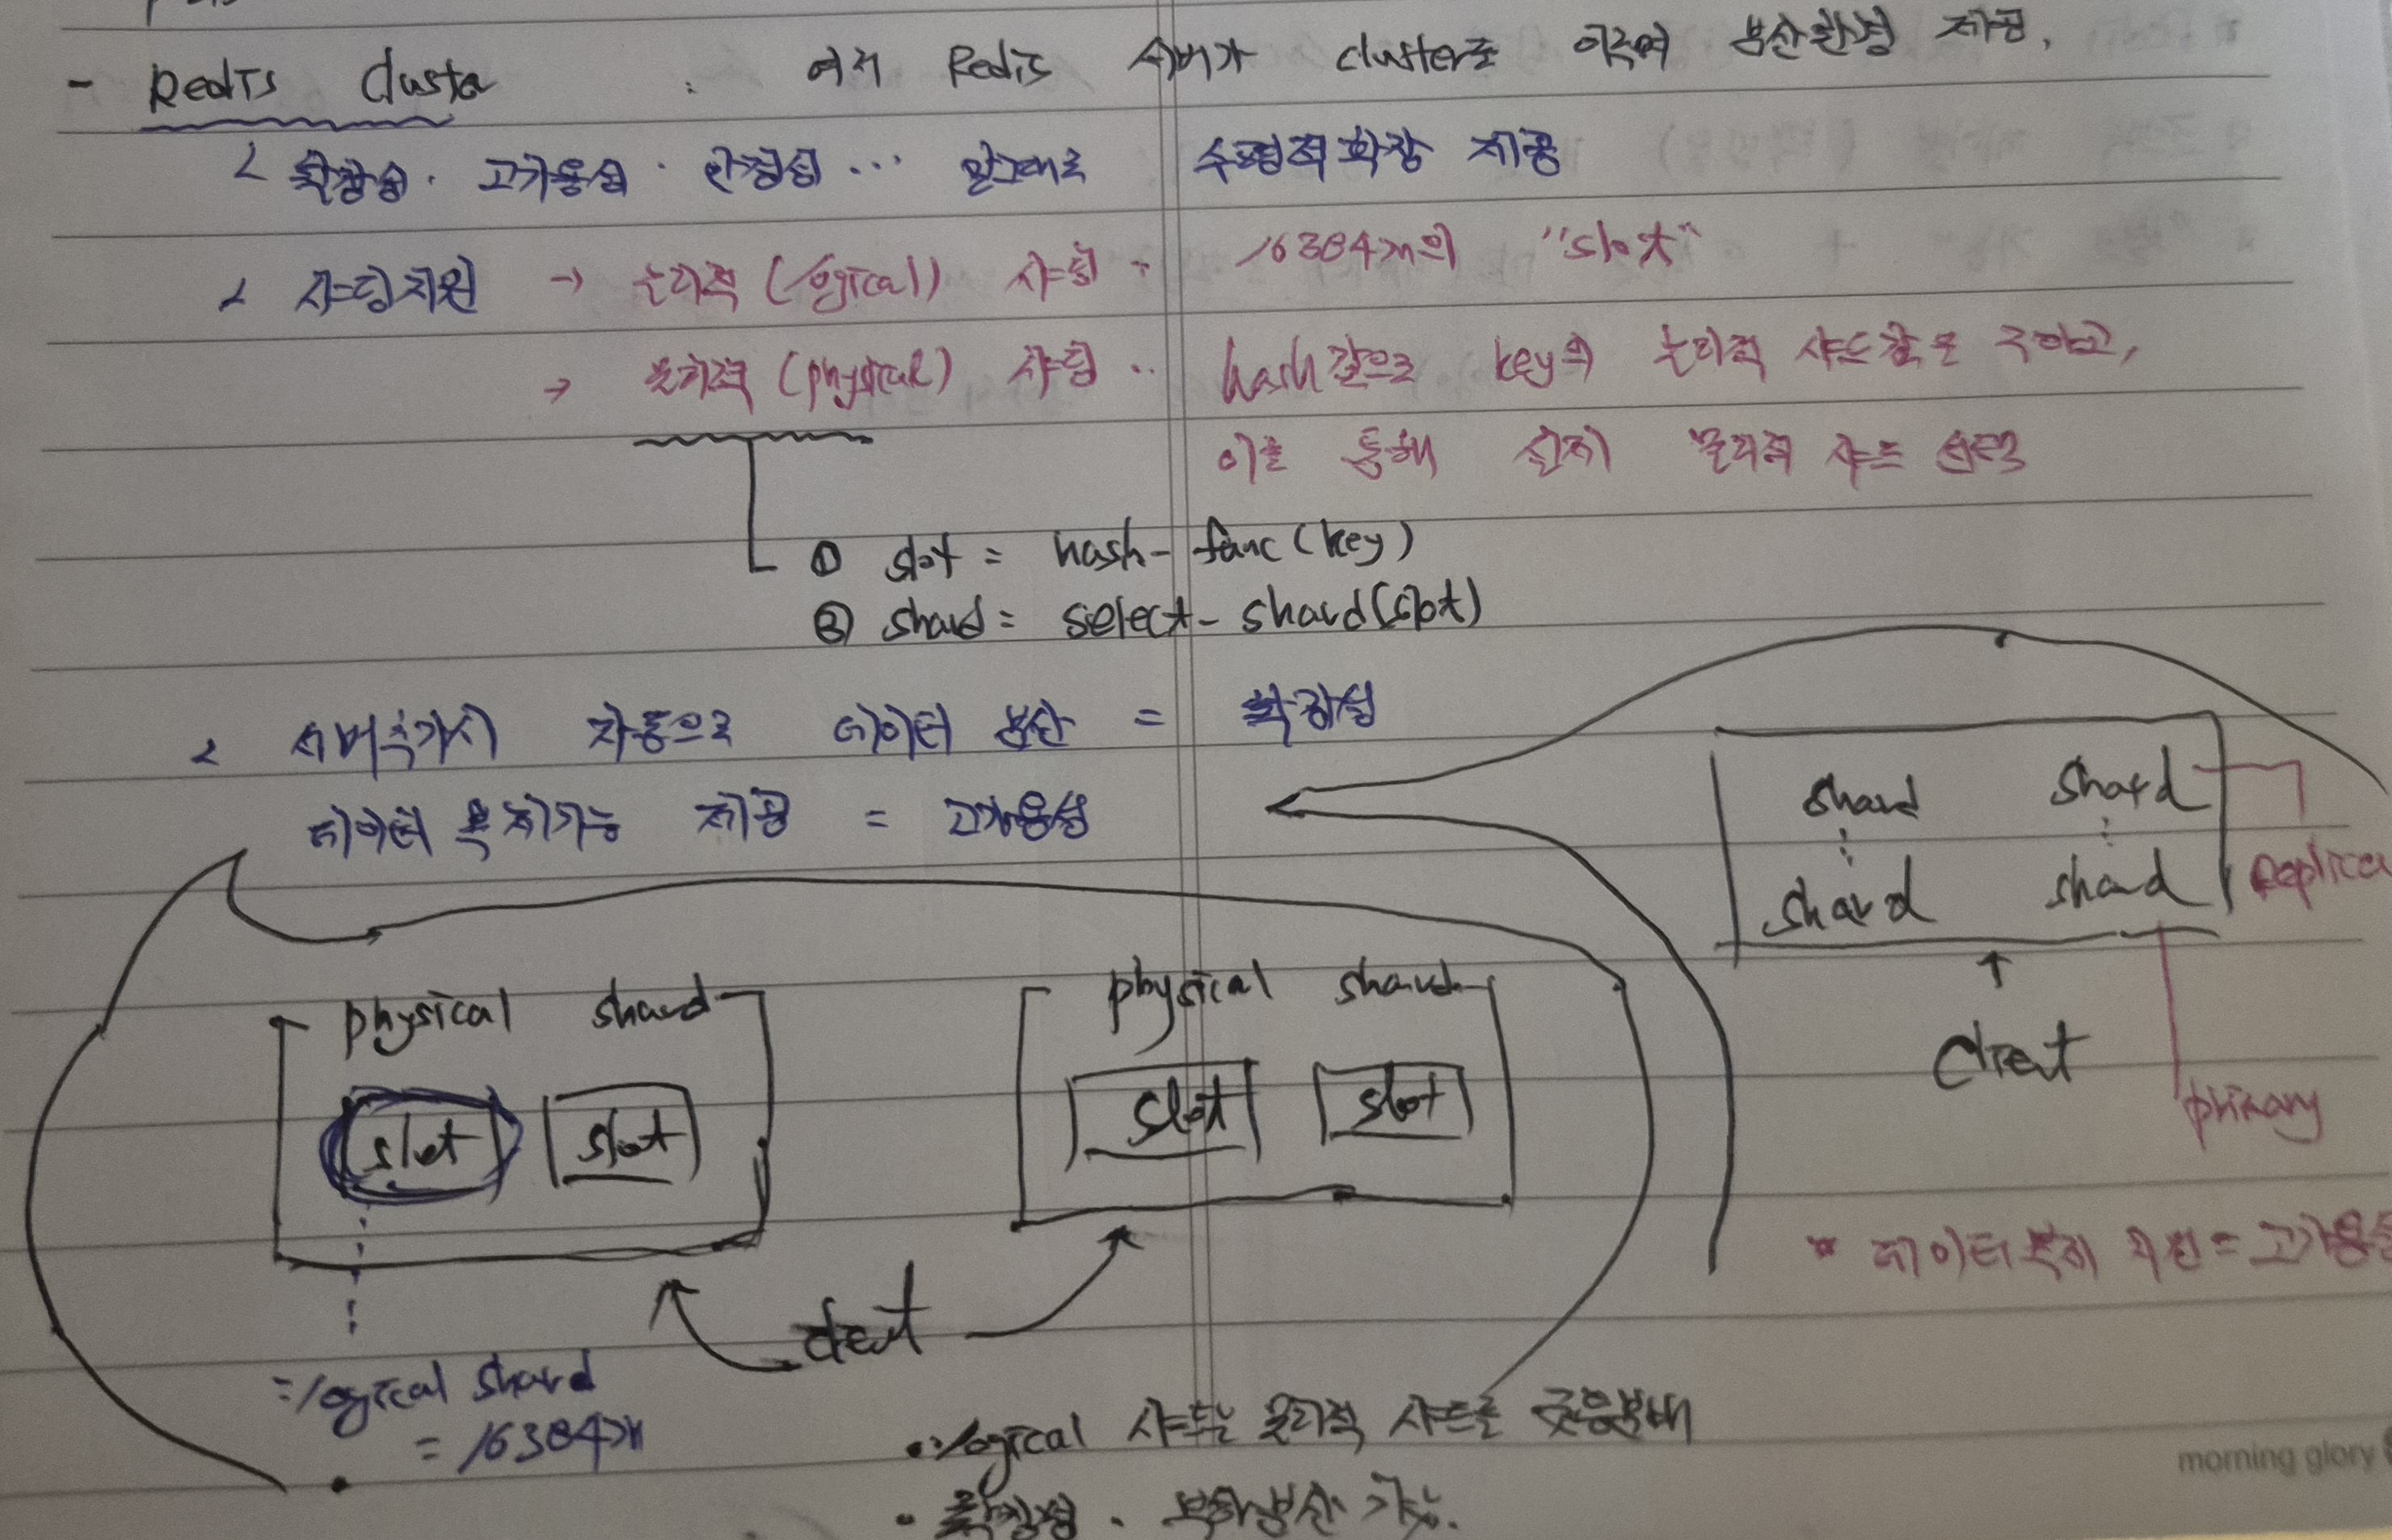 - Redis Cluster : 여러 Redis 서버가 cluster를 이루어 분산환경 제공.
확장성 · 고가용성 · 안정성 ... 말그대로 수평적확장 제공
샤딩지원 → 논리적 (logical) 샤딩 .. 16384개의 "slot"
→ 물리적 (physical) 샤딩 .. hash값으로 key의 논리적 샤드값을 구하고,
이를 통해 실제 물리적 샤드 선택
① slot = hash-func(key)
② shard = select-shard(slot)
서버추가시 자동으로 데이터 분산 = 확장성
데이터 복제기능 제공 = 고가용성
shard shard
shard shard
Replica
client
primary
* 데이터복제 지원 = 고가용성
physical shard
slot slot
physical shard
slot slot
client
= logical shard
= 16384개
· logical 샤드는 물리적 샤드로 균등분배
· 확장성 · 부하분산 가능.
morning glory